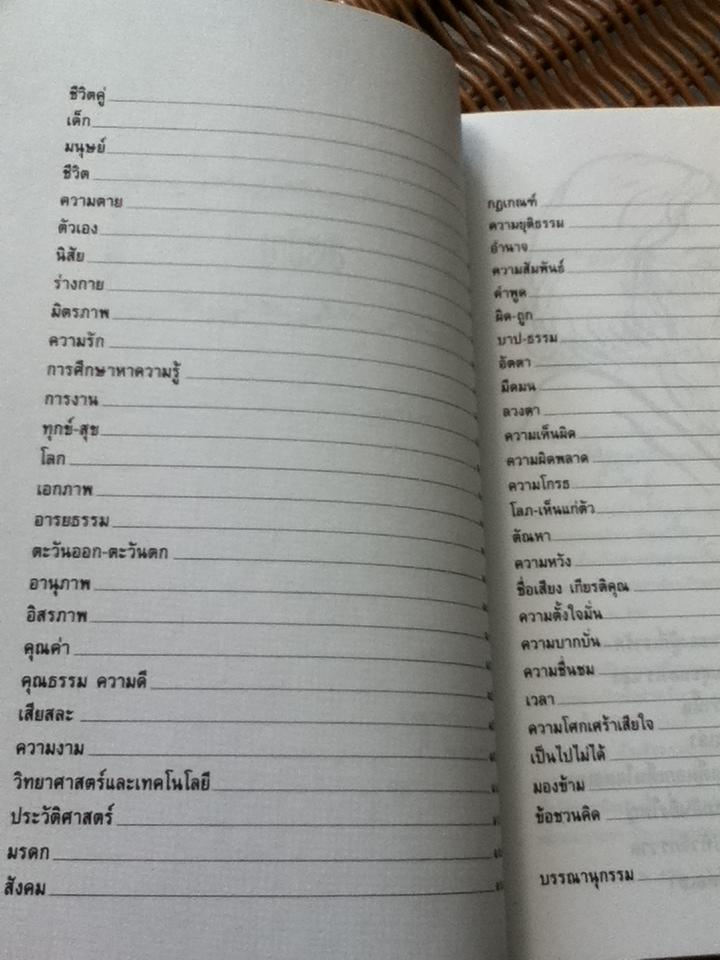 ชีวิตคู่
เด็ก
มนุษย์
ชีวิต
ความตาย
ตัวเอง
นิสัย
ร่างกาย
มิตรภาพ
ความรัก
การศึกษาหาความรู้
การงาน
ทุกข์-สุข
โลก
เอกภาพ
อารยธรรม
ตะวันออก-ตะวันตก
อานุภาพ
อิสรภาพ
คุณค่า
คุณธรรม ความดี
เสียสละ
ความงาม
วิทยาศาสตร์และเทคโนโลยี
ประวัติศาสตร์
มรดก
สังคม
กฎเกณฑ์
ความยุติธรรม
อำนาจ
ความสัมพันธ์
คำพูด
ผิด-ถูก
บาป-ธรรม
อัตตา
มืดมน
ลวงตา
ความเห็นผิด
ความผิดพลาด
ความโกรธ
โลภ-เห็นแก่ตัว
ตัณหา
ความหวัง
ชื่อเสียง เกียรติคุณ
ความตั้งใจมั่น
ความบากบั่น
ความชื่นชม
เวลา
ความโศกเศร้าเสียใจ
เป็นไปไม่ได้
มองข้าม
ข้อชวนคิด
บรรณานุกรม